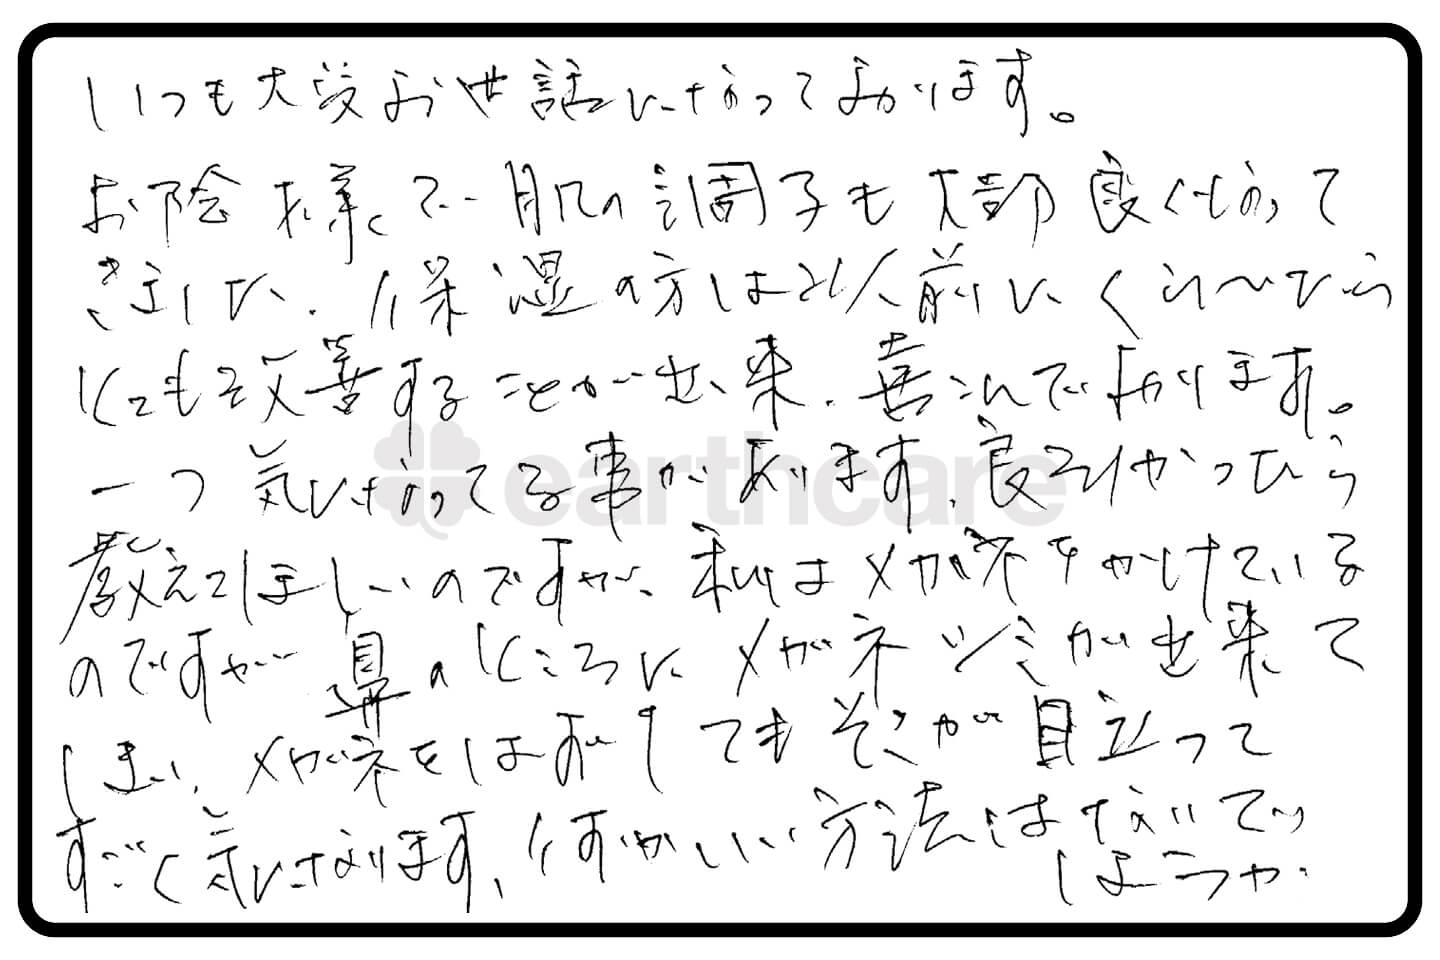 いつも大変お世話になっております。
お陰様で肌の調子も大部良くなって
きました。保湿の方は以前にくらべたら
とっても改善することが出来、喜こんでおります。
一つ気になってる事があります、良ろしかったら
earthcare
教えてほしいのですが、私はメガネをかけている
のですが鼻のところにメガネジミが出来て
しまい、メガネをはずしてもそこが目立って
すごく気になります、何かいい方法はないで
しょうか